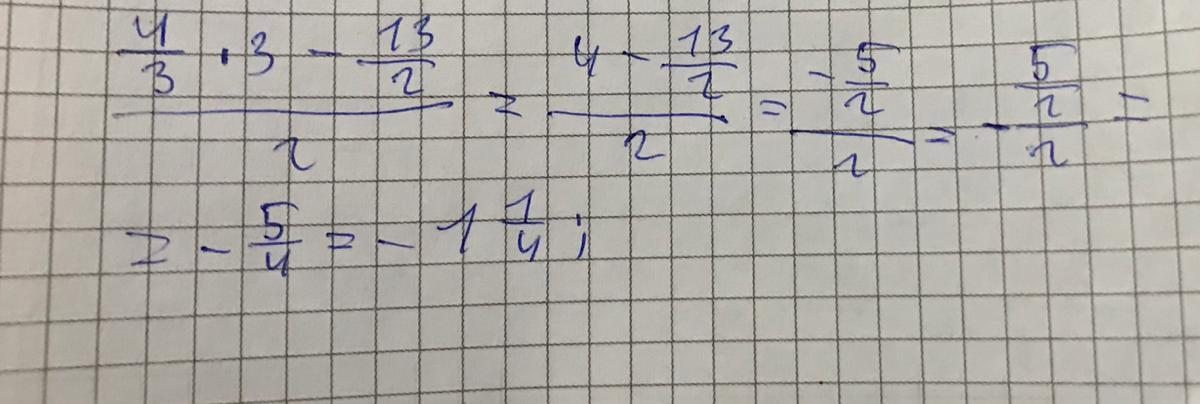 \frac{\frac{4}{3} \cdot 3 - \frac{13}{2}}{2} = \frac{4 - \frac{13}{2}}{2} = \frac{-\frac{5}{2}}{2} = -\frac{\frac{5}{2}}{2} =
= -\frac{5}{4} = -1\frac{1}{4};